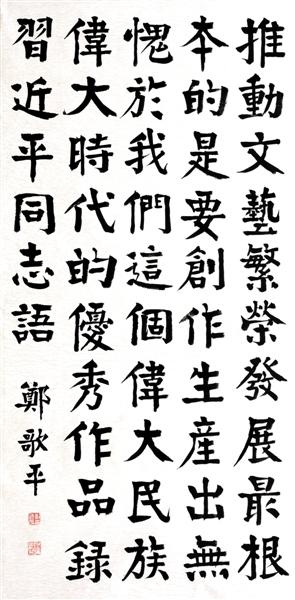 推動文藝繁榮發展最根
本的是要創作生産出無
愧於我們這個偉大民族
偉大時代的優秀作品錄
習近平同志語
鄭歌平